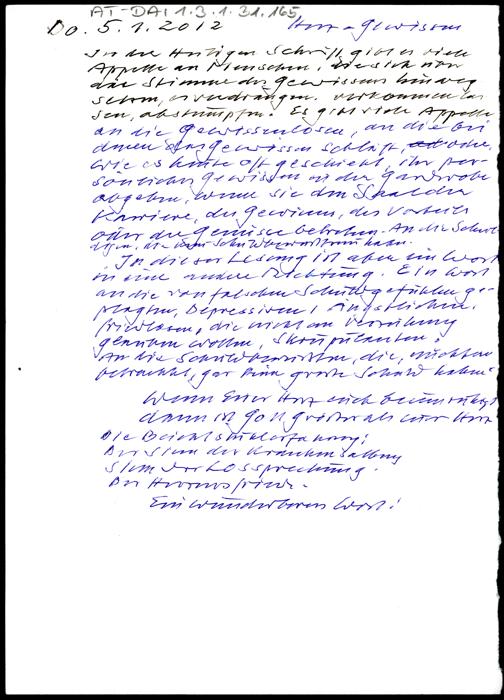 AT-DA: 1.3.1.31.165
Do. 5.1.2012 Herz - Gewissen
In der Heiligen Schrift gibt es viele
Appelle an Menschen, die sich über
die Stimme des Gewissens hinweg
setzen, es verdrängen, verkommen las
sen, abstumpfen. Es gibt viele Appelle
an die Gewissenlosen, an die bei
denen das Gewissen schläft, oder,
wie es heute oft geschieht, ihr per-
sönliches Gewissen an der Garderobe
abgeben, wenn sie den Saal der
Karriere, des Gewinns, des Vorteils
oder der Genüsse betreten. An die Schul
digen, die kein Schuldbewusstsein haben.
In dieser Lesung ist aber ein Wort
in eine andere Richtung. Ein Wort
an die von falschen Schuldgefühlen ge-
plagten, Depressiven, Ängstlichen,
friedlosen, die nicht an Verzeihung
glauben wollen, Skrupulanten!
An die Schuldbewussten, die, nüchtern
betrachtet, gar keine große Schuld haben!
Wenn Euer Herz euch beunruhigt
dann ist Gott größer als euer Herz
Die Beichtstuhlerfahrung!
Der Sinn der Krankensalbung
Sinn der Lossprechung.
Der Herzensfriede.
Ein wunderbares Wort!